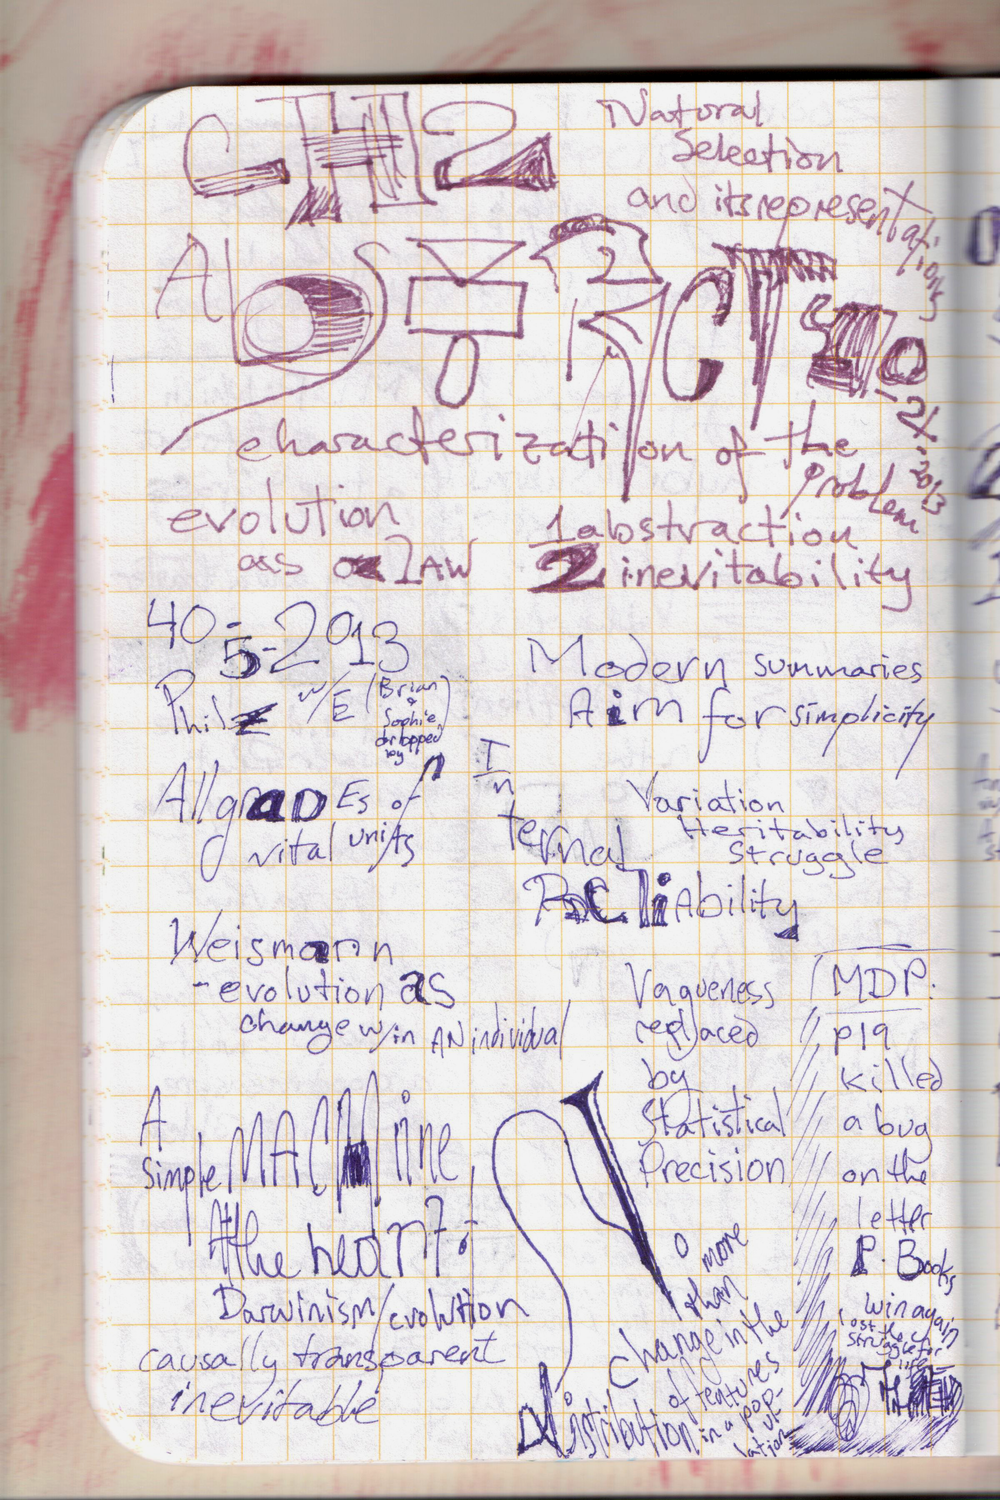 CH2
Natural
Selection
and its representations
AbSTRACT
characterization of the
Problem
evolution
as a LAW
1 abstraction
2 inevitability
40-5-2013
Phil w/E (Brian
&
Sophie
dropped
by)
Modern summaries
Aim for simplicity
All gradEs of
vital units
In
ternal
Variation
Heritability
Struggle
ReliAbility
Weismann
- evolution as
change w/in AN individual
Vagueness
replaced
by
Statistical
Precision
MDP:
p19
killed
a bug
on the
letter
P. Books
win again
lost the
struggle for
life
A
simple MACHine
At the heart:
Darwinism/evolution
causally transparent
inevitable
No more
than
Change in the
distribution of features
in a pop-
ulation